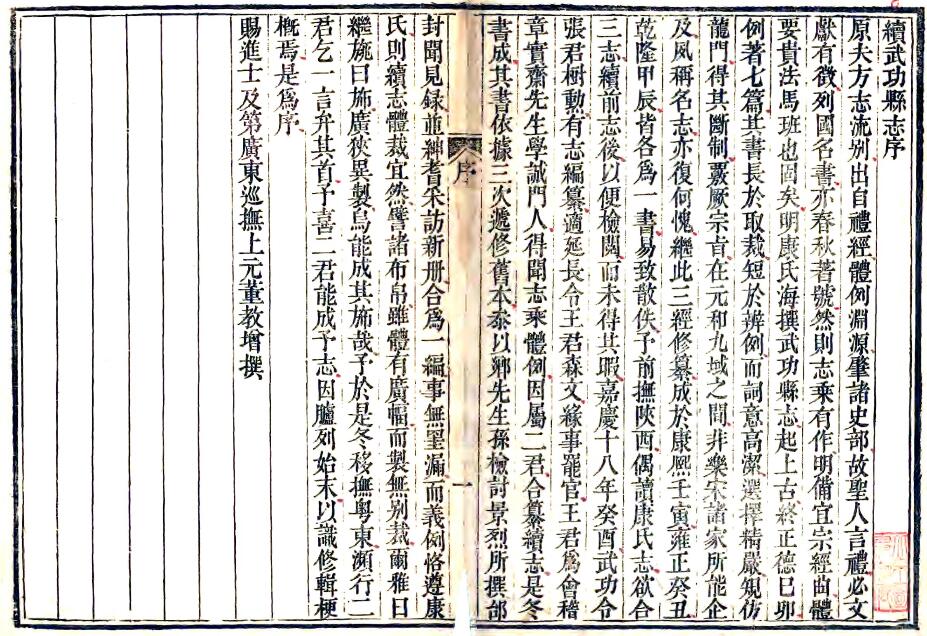 續武功縣志序
原夫方志流别出自禮經體例淵源肇諸史部故聖人言禮必文
獻有徵列國名書亦春秋著號然則志乘有作明備宜宗經曲體
要貴法馬班也固矣明康氏海撰武功縣志起上古終正德巳卯
例著七篇其書長於取裁短於辨例而詞意高潔選擇精嚴規仿
龍門得其斷制覈厥宗㫖在元和九域之間非樂宋諸家所能企
及夙稱名志亦復何愧繼此三經修纂成於康熙壬寅雍正癸丑
乾隆甲辰皆各爲一書易致散佚予前撫陝西偶讀康氏志欲合
三志續前志後以便檢閲而未得其暇嘉慶十八年癸酉武功令
張君樹勳有志編纂適延長令王君森文緣事罷官王君爲會稽
章實齋先生學誠門人得聞志乘體例因屬二君合纂續志是冬
書成其書依據三次遞修舊本泰以鄉先生孫檢討景烈所撰邰
封聞見録並紳耆采訪新册合爲一編事無罣漏而義例恪遵康
氏則續志體裁宜然譬諸布帛雖體有廣幅而製無别裁爾雅曰
繼施曰施廣狹異製烏能成其施哉予於是冬移撫粤東瀕行二
君乞一言弁其首予喜二君能成予志因臚列始末以識修輯梗
概焉是爲序
賜進士及第廣東巡撫上元董教增撰
序
一